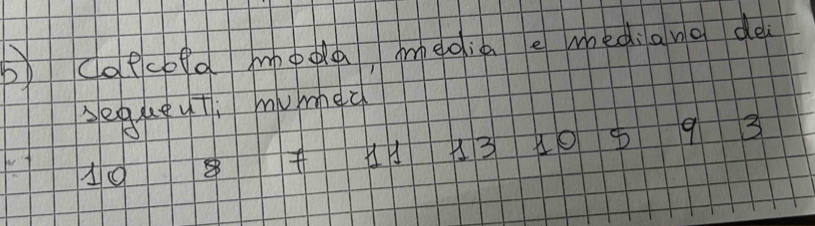 5) Calcola moda, media e mediana dei
seguenti numeri
10 8 7 11 13 10 5 9 3